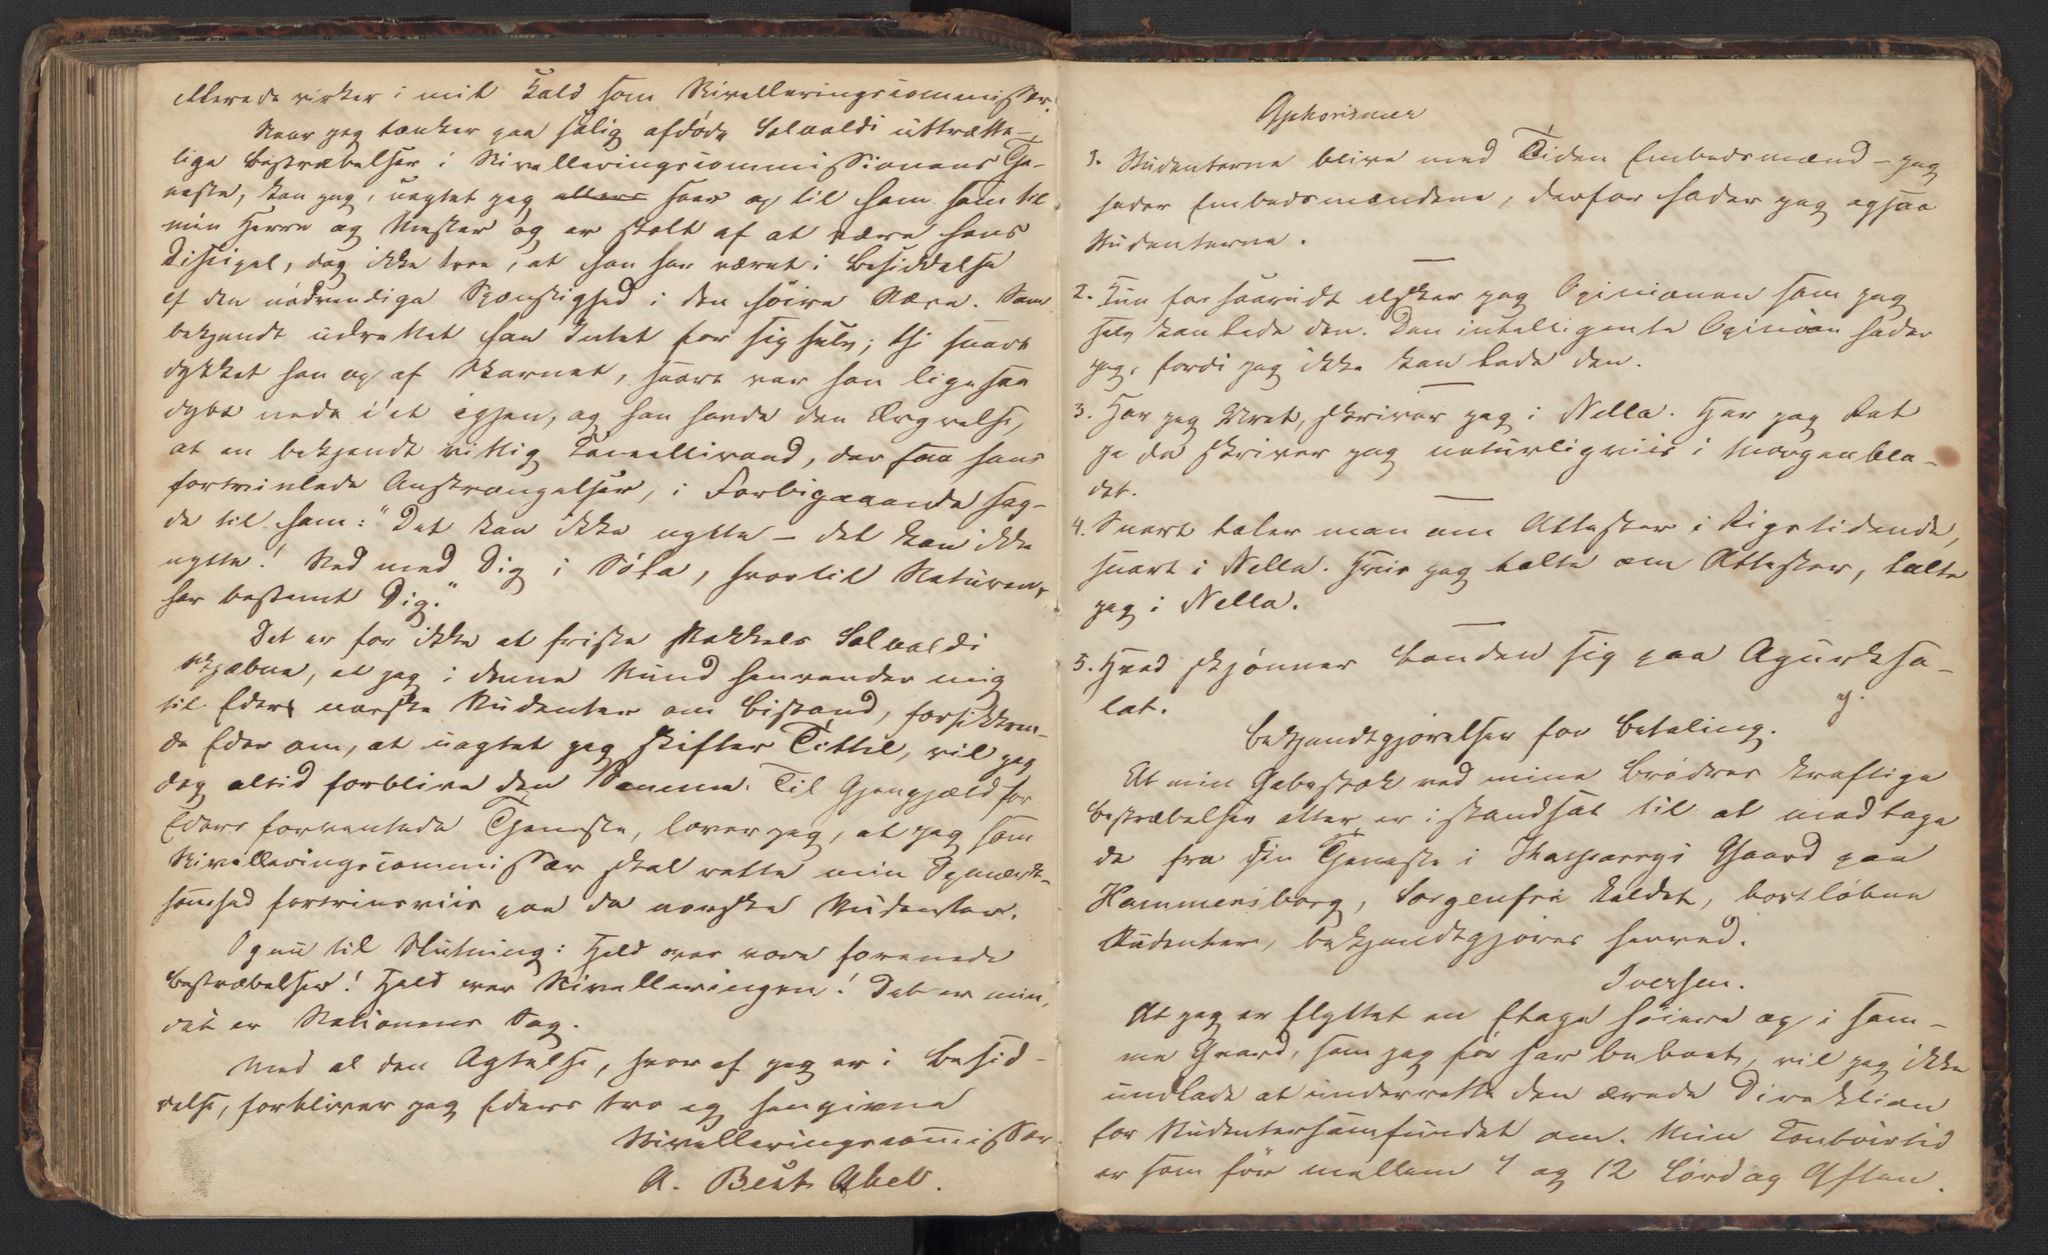 allerede virker i mit Kald som Nivelleringscommissær.
Naar jeg tænker paa salig afdøde Solvoldi utrætte-
lige Bestræbelser i Nivelleringscommissionens Tje-
neste, kan jeg, uagtet jeg ellers seer op til ham som til
min Herre og Mester og er stolt af at være hans
Discipel, dog ikke troe, at han har været i Besiddelse
af den nødvendige Spænstighed i den høire Næve. Som
bekjendt udrettet han Intet for sig selv; thi snart
dykket han op af Skarnet, snart var han ligesaa
dybt nede i'et igjen, og han havde den Ærgrelse,
at en bekjendt vittig, der saa hans
fortvivlede Anstrængelser, i Forbigaaende sag-
de til ham: "Det kan ikke nytte – det kan ikke
nytte! Ned med Dig i Søla, hvortil Naturen
har bestemt Dig."
Det er for ikke at friste Stakkels Solvoldi
Skjæbne, at jeg i denne Stund henvender mig
til Eder norske Studenter om Bistand, forsikkren-
de Eder om, at uagtet jeg skifter Tittel, vil jeg
dog altid forblive den Samme. Til Gjengjæld for
Eders forventede Tjeneste, lover jeg, at jeg som
Nivelleringscommissær skal rette min Opmærk-
somhed fortrinsviis paa de norske Studenter.
Og nu til Slutning: Held over vore forenede
Bestræbelser! Held over Nivelleringen! Det er min,
det er Nationens Sag.
Med al den Agtelse, hvoraf jeg er i Besid-
delse, forbliver jeg Eders tro og hengivne
Nivelleringscommissær
A. Beut Abel.
Aphorismer
1. Studenterne blive med Tiden Embedsmænd – jeg
hader Embedsmændene, derfor hader jeg ogsaa
Studenterne.
2. Kun forsaavidt elsker jeg Opinionen som jeg
selv kan lede den. Den intelligente Opinion hader
jeg, fordi jeg ikke kan lede den.
3. Har jeg Uret, skriver jeg i Nella. Har jeg Ret
ja da skriver jeg naturligviis i Morgenbla-
det.
4. Snart taler man om Attester i Rigstidende,
snart i Nella. Hvis jeg talte om Attester, talte
jeg i Nella.
5. Hvad skjønner Bonden sig paa Agurksa-
lat.
y.
Bekjendtgjørelser for Betaling.
At min Gabestok ved mine Brødres kraftige
Bestræbelser atter er istandsat til at modtage
de fra sin Tjeneste i Gaard paa
Hammersborg, Sorgenfri kaldet, bortløbne
Studenter, bekjendtgjøres herved.
Iversen.
At jeg er flyttet en Etage høiere op i sam-
me Gaard, som jeg før har beboet, vil jeg ikke
undlade at underrette den ærede Direktion
for Studentersamfundet om. Min Contoirtid
er som før mellem 7 og 12 Lørdag Aften.